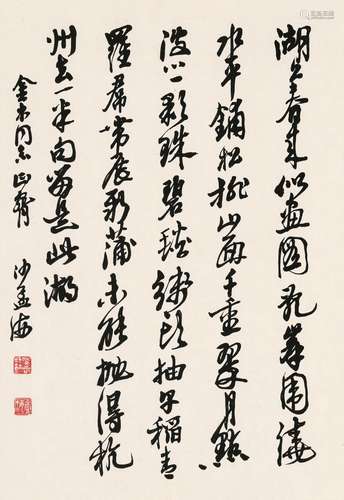 湖上春来似畫圖亂峯围繞
水平鋪松排山面千重翠月點
波心一颗珠碧毯线头抽早稻青
羅裙帶展新蒲未能抛得杭
州去一半勾留是此湖
同志正
沙孟海